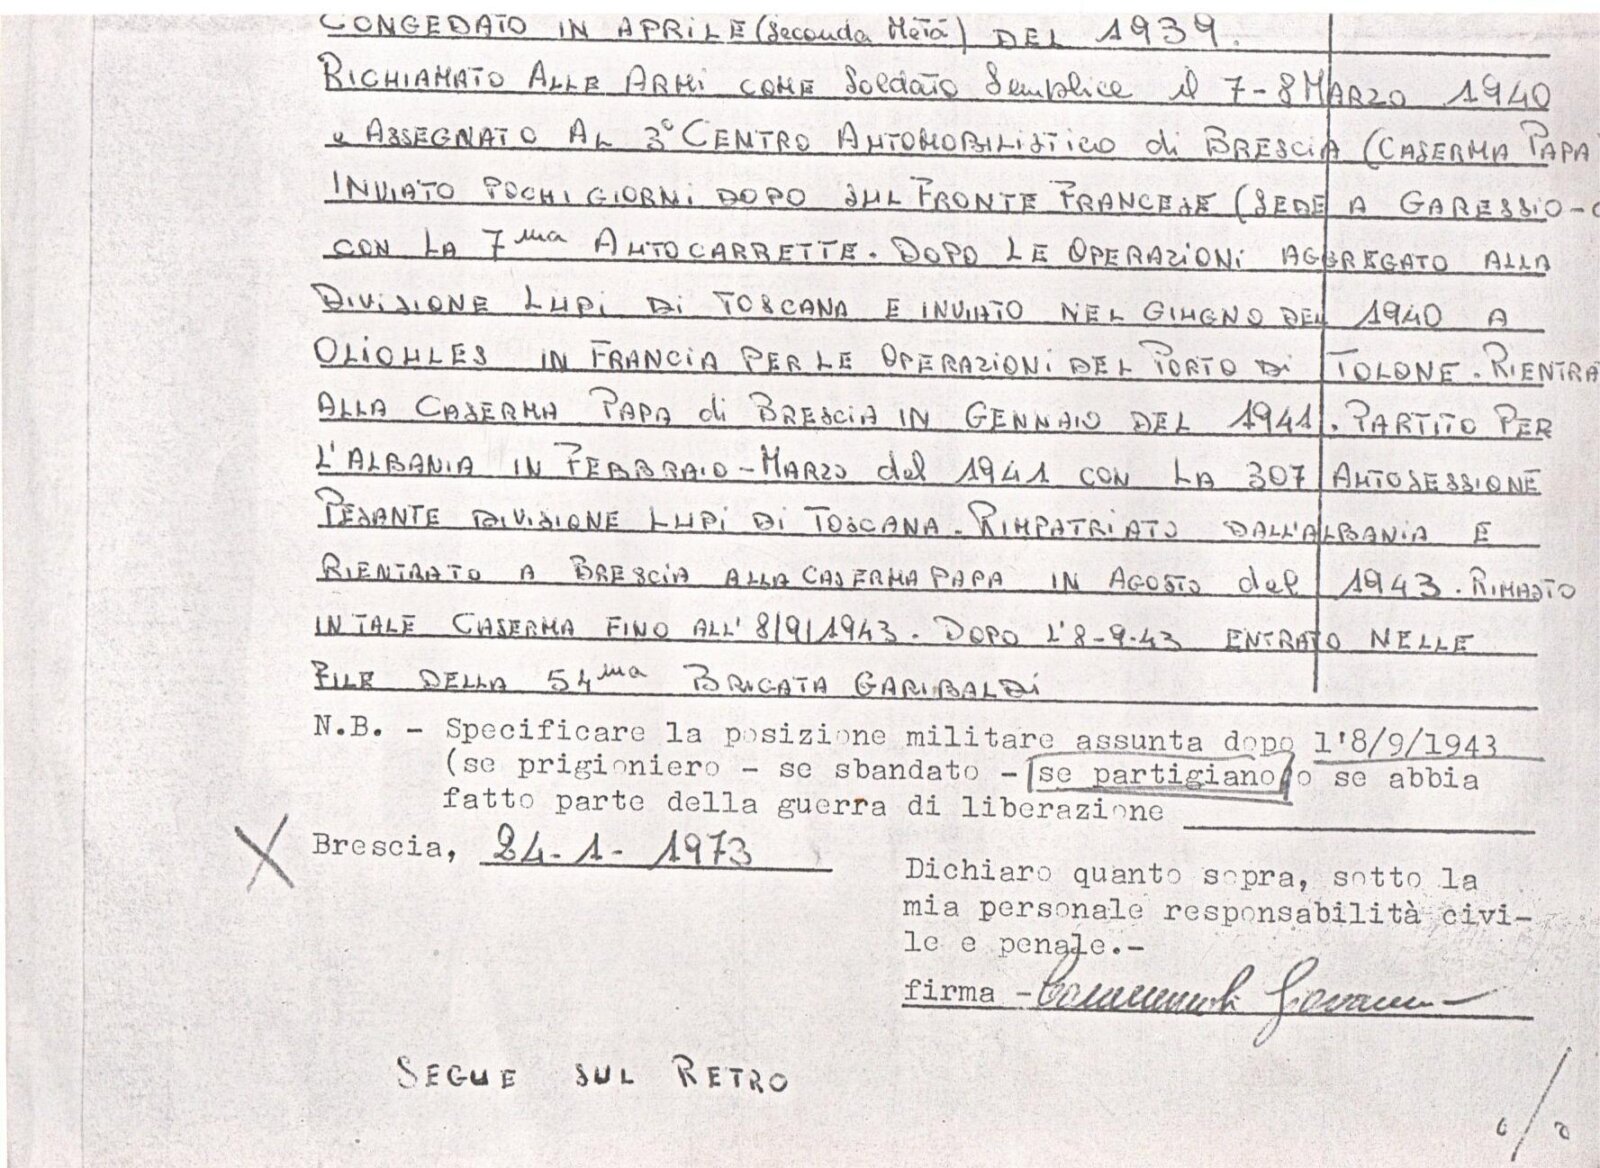 CONGEDATO IN APRILE (Seconda Metá) DEL 1939.
RICHIAMATO ALLE ARMI COME Soldato Semplice il 7-8 MARZO 1940
e ASSEGNATO AL 3° CENTRO AUTOMOBILISTICO di BRESCIA (CASERMA PAPA
INVIATO POCHI GIORNI DOPO SUL FRONTE FRANCESE (SEDE A GARESSIO-
CON LA 7ma AUTOCARRETTE. DOPO LE OPERAZIONI AGGREGATO ALLA
DIVISIONE LUPI DI TOSCANA E INVIATO NEL GIUGNO DEL 1940 A
OLIOULES IN FRANCIA PER LE OPERAZIONI DEL PORTO DI TOLONE. RIENTRA
ALLA CASERMA PAPA di BRESCIA IN GENNAIO DEL 1941. PARTITO PER
L'ALBANIA IN FEBBRAIO-MARZO del 1941 CON LA 307 AUTOSESSIONE
PESANTE DIVISIONE LUPI DI TOSCANA. RIMPATRIATO DALL'ALBANIA E
RIENTRATO A BRESCIA ALLA CASERMA PAPA IN AGOSTO del 1943. RIMASTO
IN TALE CASERMA FINO ALL'8/9/1943. DOPO L'8-9-43 ENTRATO NELLE
FILE DELLA 54ma BRIGATA GARIBALDI
N.B. - Specificare la posizione militare assunta dopo l'8/9/1943
(se prigioniero - se sbandato - se partigiano o se abbia
fatto parte della guerra di liberazione
Brescia, 24-1-1973
Dichiaro quanto sopra, sotto la
mia personale responsabilità civi-
le e penale.-
firma -
SEGUE SUL RETRO